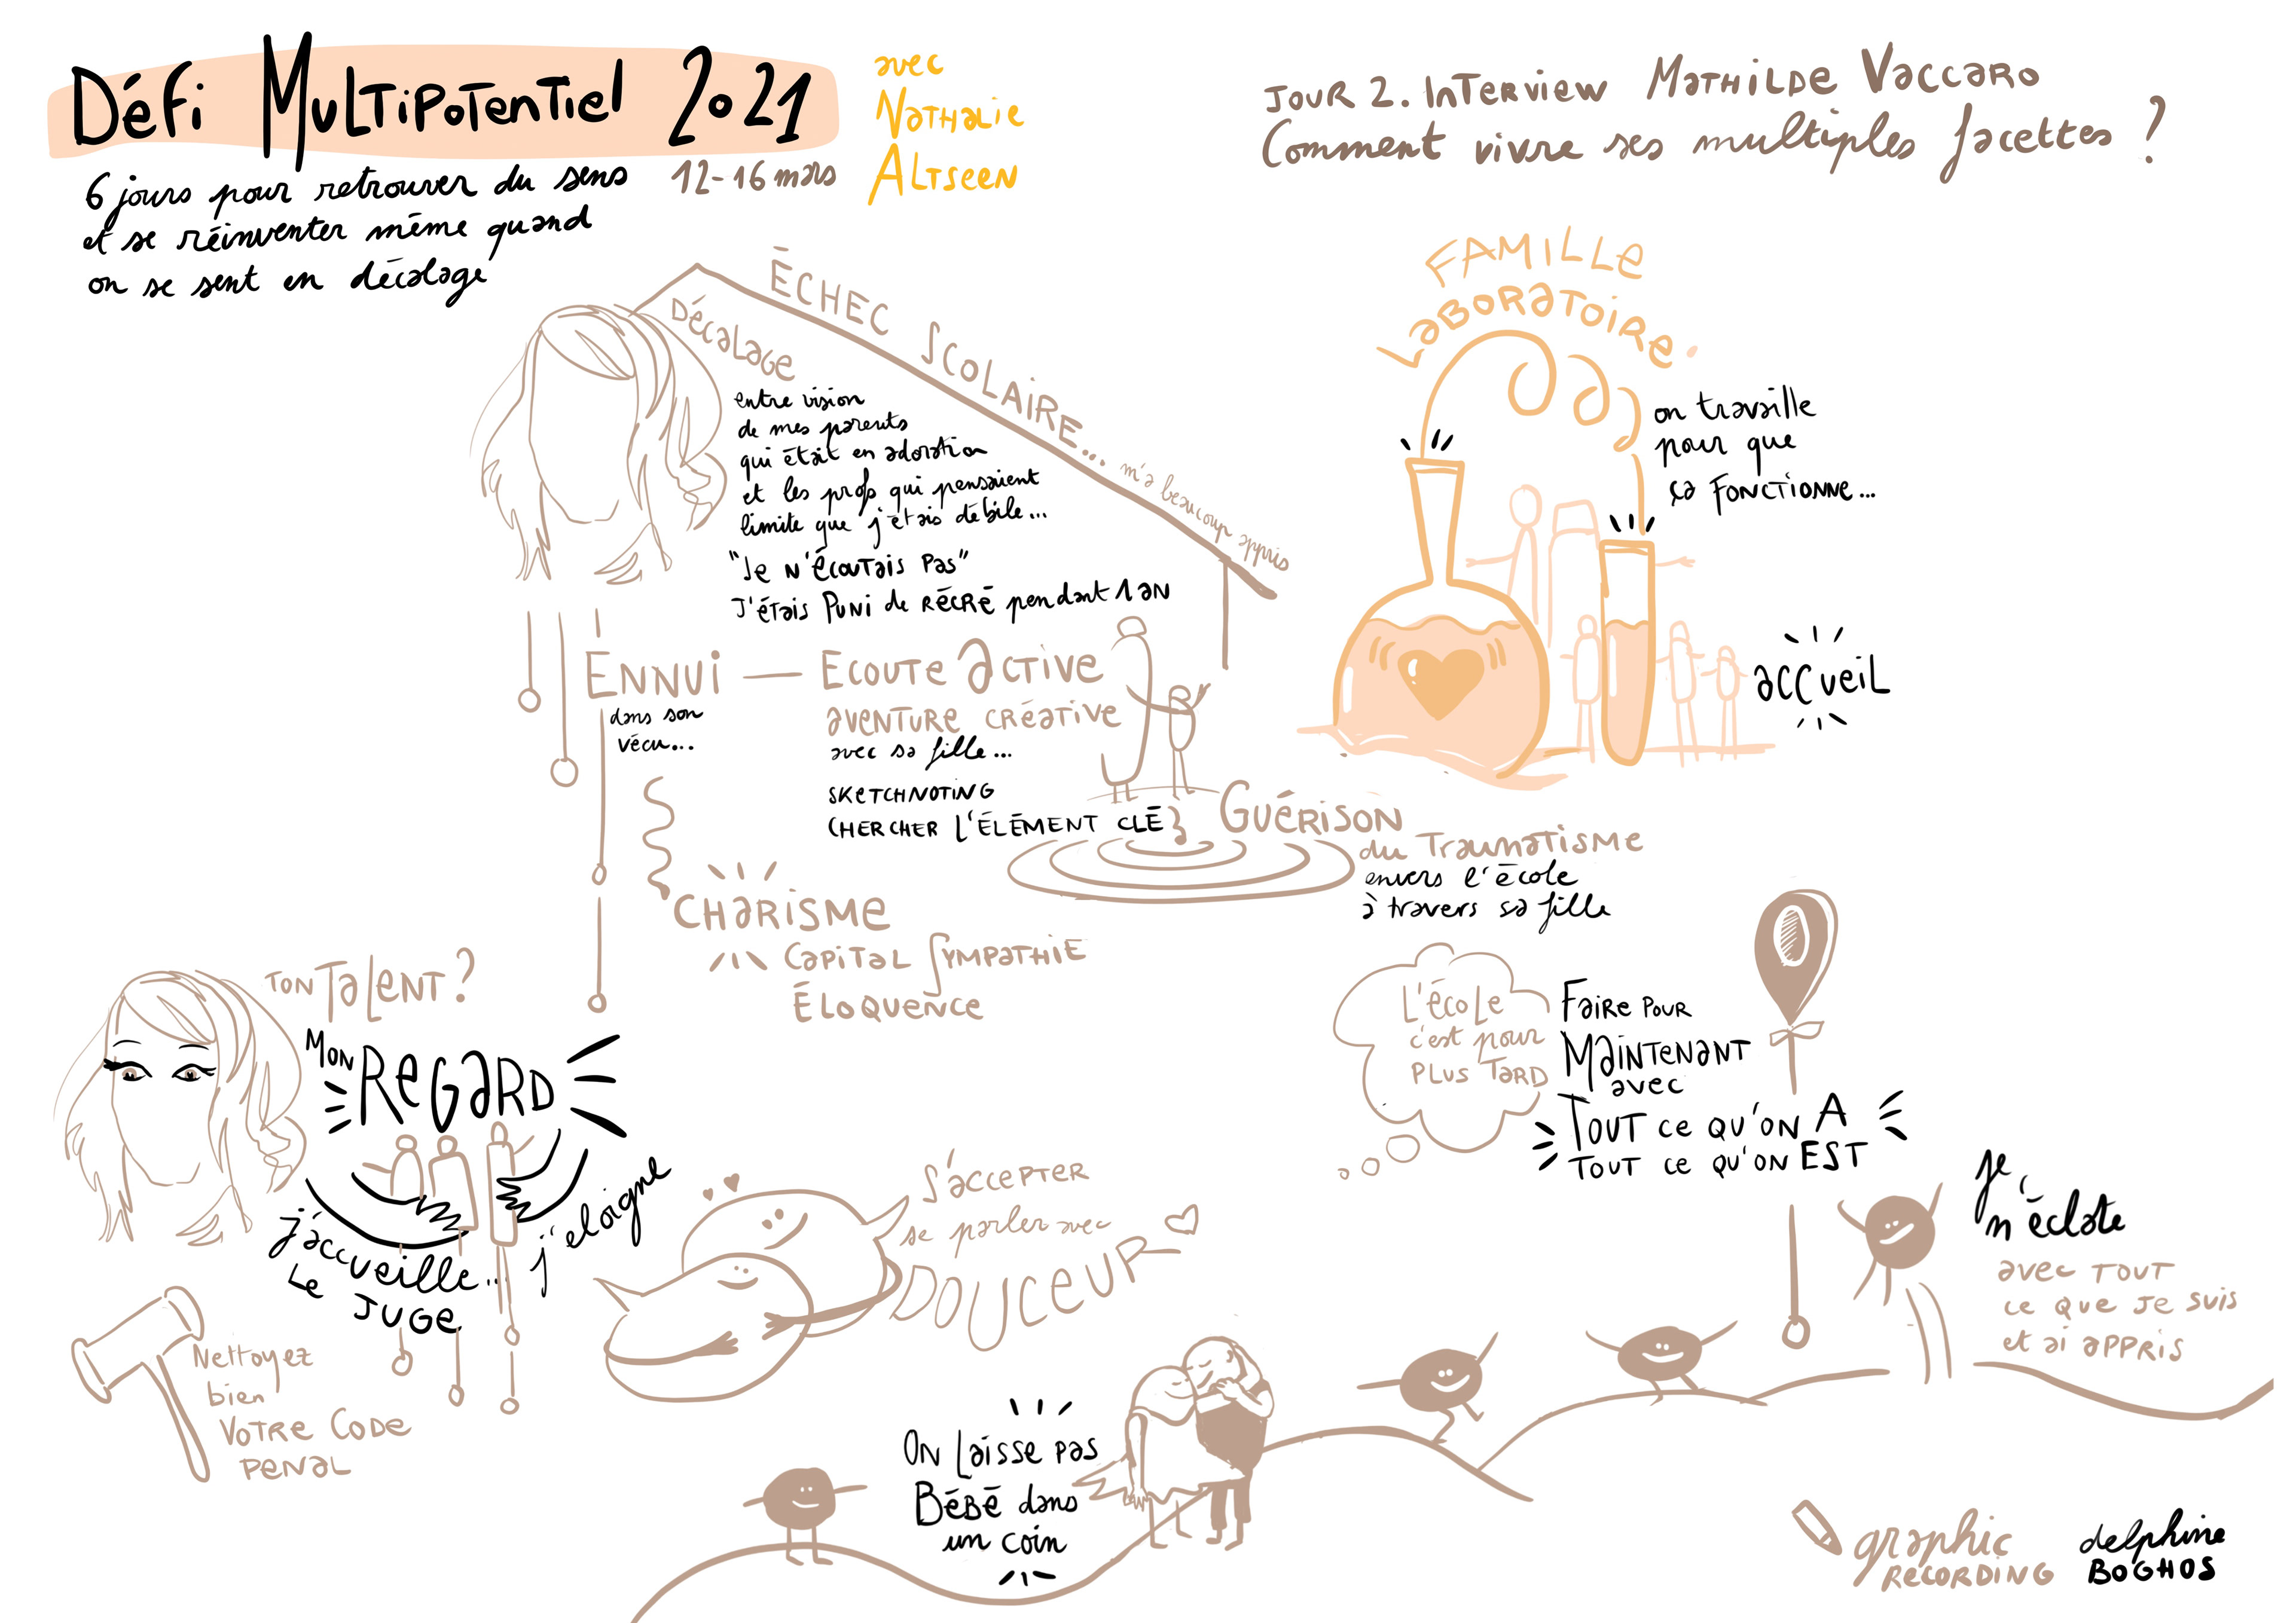 Défi Multipotentiel 2021
6 jours pour retrouver du sens
et se réinventer même quand
on se sent en décalage
12-16 mars
avec
Nathalie
Altseen
Jour 2. Interview Mathilde Vaccaro
Comment vivre ses multiples facettes ?
Échec scolaire... m'a beaucoup appris
Décalage
entre vision
de mes parents
qui était en adoration
et les profs qui pensaient
limite que j'étais débile...
"Je n'écoutais pas"
J'étais puni de récré pendant 1 an
Famille
Laboratoire
on travaille
pour que
ça fonctionne...
accueil
Ennui — Ecoute active
dans son
vécu...
aventure créative
avec sa fille...
sketchnoting
chercher l'élément clé
Guérison
du traumatisme
envers l'école
à travers sa fille
Charisme
Capital Sympathie
Éloquence
Ton talent ?
Mon
Regard
j'accueille...
le juge
j'eloigne
Nettoyez
bien
votre code
penal
S'accepter
se parler avec
Douceur
L'école
c'est pour
plus tard
Faire pour
Maintenant
avec
Tout ce qu'on A
Tout ce qu'on EST
Je
m'éclate
avec tout
ce que je suis
et ai appris
On laisse pas
Bébé dans
un coin
graphic
recording
delphine
Boghos